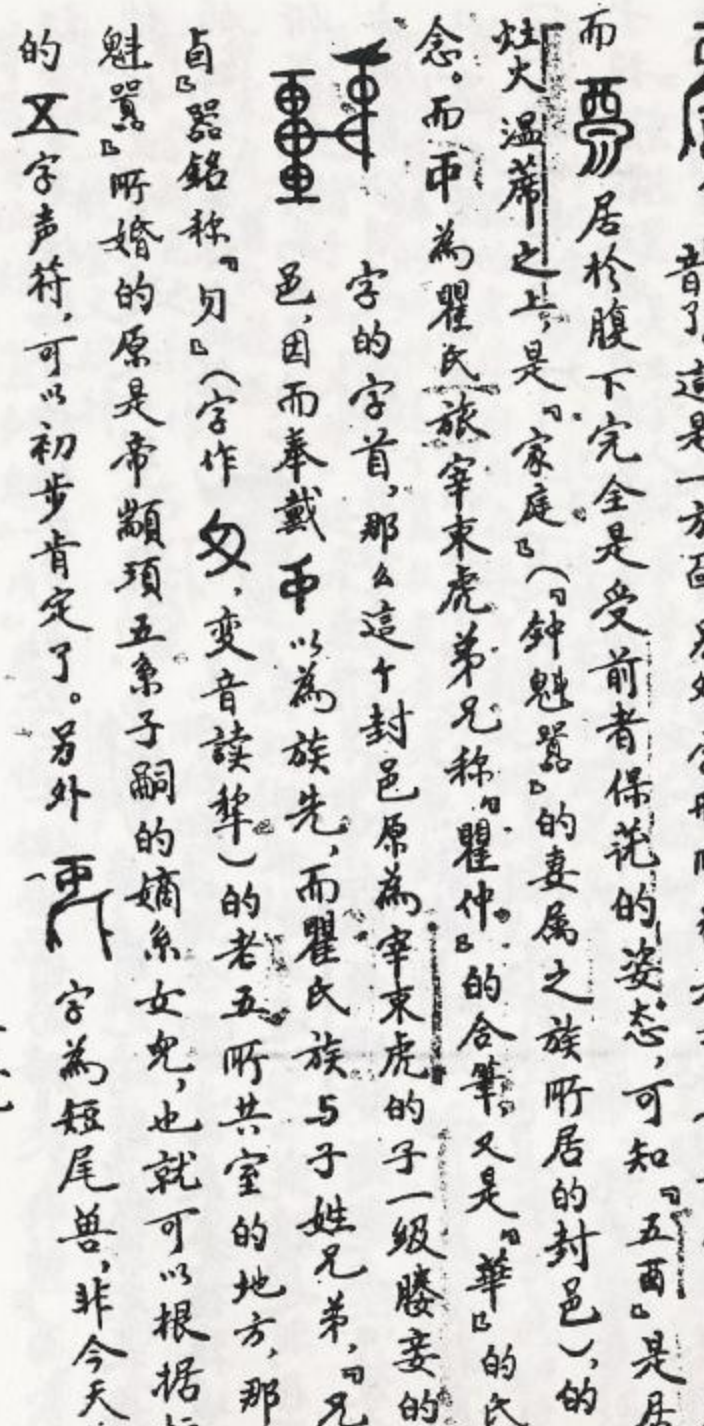 音了。這是一方
而 居於腹下完全是受前者保护的姿态，可知『五酉』是
灶火温蓆之上，是『家庭』（『钟魁器』的妻属之族所居的封邑），的
念。而 為瞿氏旅宰東虎弟兄称『瞿仲』的合筆。又是『華』的氏
字的字首，那么這个封邑原為宰東虎的子一級媵妾的
邑，因而奉戴 以為族先，而瞿氏族与子姓兄弟，『兄
卣』器銘称『匁』（字作 ，变音讀犂）的老五所共室的地方，那
魁器』所婚的原是帝顓頊五系子嗣的嫡系女兒，也就可以根据
的 字声符，可以初步肯定了。另外 字為短尾兽，非今天